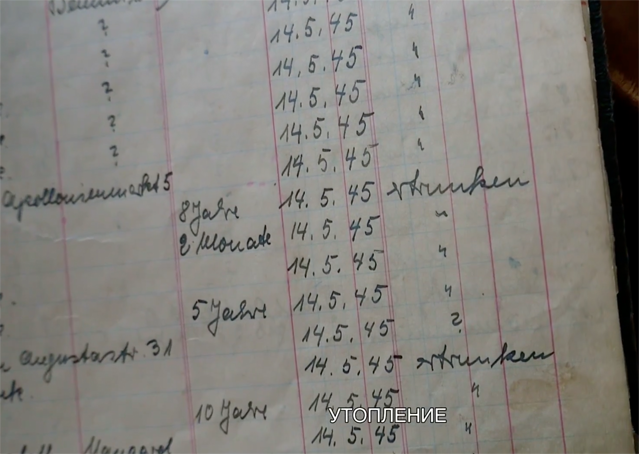 14.5.45
? 14.5.45 "
? 14.5.45 "
? 14.5.45 "
? 14.5.45 "
? 14.5.45 "
5 14.5.45 ertrunken
8 Jahre 14.5.45 "
2 Monate 14.5.45 "
14.5.45 "
5 Jahre 14.5.45 ?
Augustastr. 31 14.5.45 ertrunken
10 Jahre 14.5.45 "
14.5.45 "
УТОПЛЕНИЕ